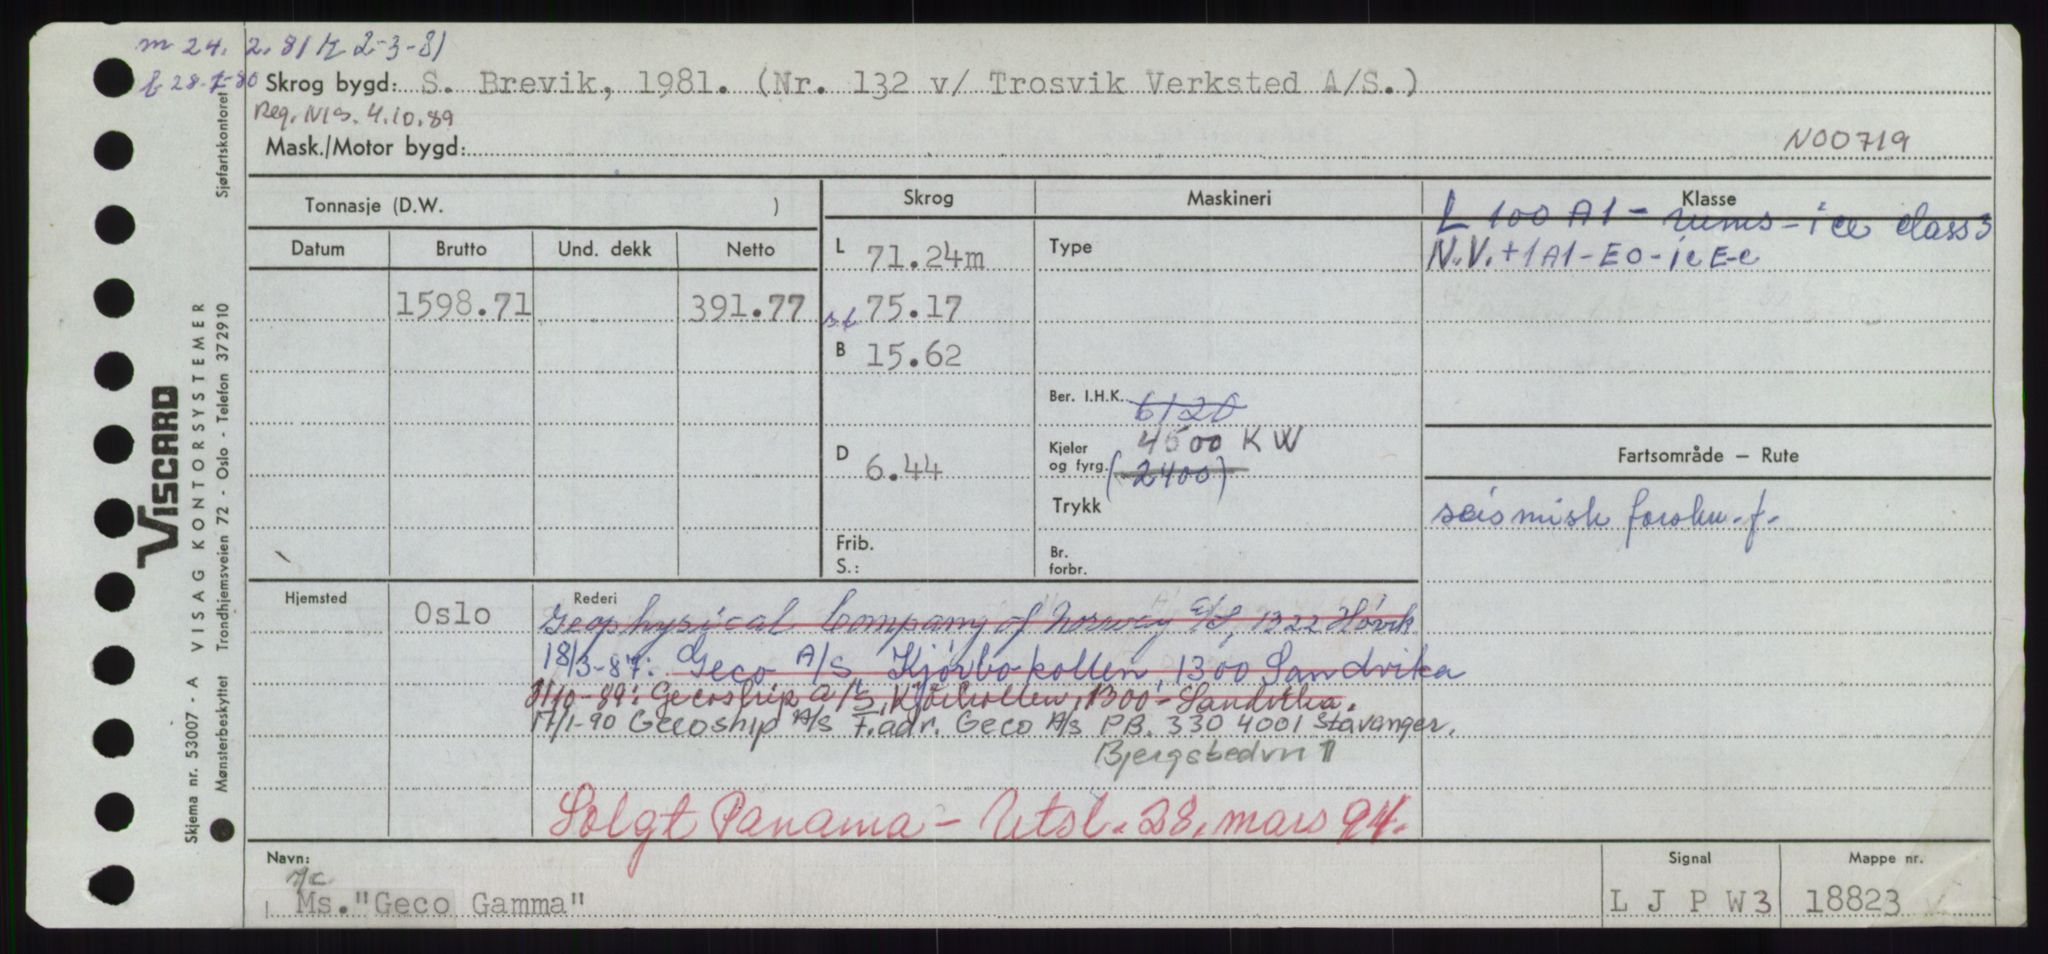 m 24. 2. 81 2-3-81
Skrog bygd: S. Brevik, 1981. (Nr. 132 v/ Trosvik Verksted A/S.)
Reg. NIS. 4.10.89
Mask./Motor bygd:
N00719
Tonnasje (D.W. )
Skrog
Maskineri
Klasse
L 100 A1 - rums - ice class 3
Datum
Brutto
Und. dekk
Netto
L 71.24m
Type
N.V. +1A1-E0-icE-c
1598.71
391.77
75.17
B 15.62
Ber. I.H.K. 6120
Kjeler og fyrg. 4500 KW
(2400)
D 6.44
Fartsområde — Rute
Trykk
seismisk forskn. f.
Frib.
S.:
Br. forbr.
Hjemsted
Oslo
Rederi
Geophysical Company of Norway A/S, 1322 Høvik
18/3-87: Geco A/S, Kjørbokollen, 1300 Sandvika
Gecoship A/S, Kjørbokollen, 1300 Sandvika.
17/1-90 Gecoship A/S F.adr. Geco A/S PB. 330 4001 Stavanger.
Solgt Panama - Utsl. 28. mars 94.
Navn:
Ms. "Geco Gamma"
Signal
L J P W 3
Mappe nr.
18823
Sjøfartskontoret
VISCARD
VISAG KONTORSYSTEMER
Trondhjemsveien 72 - Oslo - Telefon 372910
Skjema nr. 53007 - A
Mønsterbeskyttet